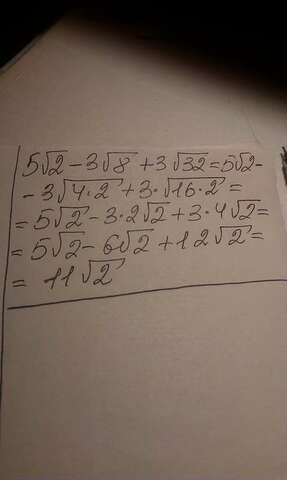 5√2 - 3√8 + 3√32 = 5√2 -
- 3√4·2 + 3·√16·2 =
= 5√2 - 3·2√2 + 3·4√2 =
= 5√2 - 6√2 + 12√2 =
= 11√2